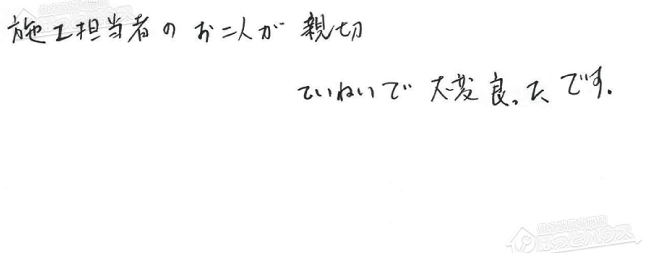 施工担当者のお二人が 親切
ていねいで 大変良ったです。